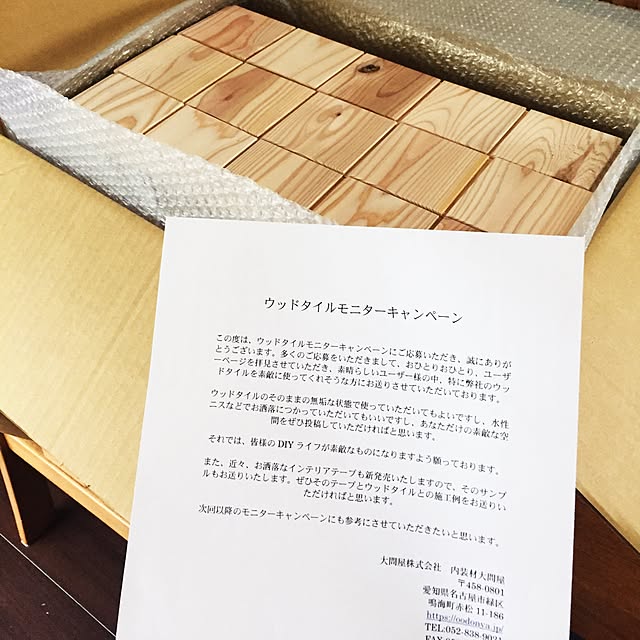 ウッドタイルモニターキャンペーン
この度は、ウッドタイルモニターキャンペーンにご応募いただき、誠にありが
とうございます。多くのご応募をいただきまして、おひとりおひとり、ユーザ
ーページを拝見させていただき、素晴らしいユーザー様の中、特に弊社のウッ
ドタイルを素敵に使ってくれそうな方にお送りさせていただいております。
ウッドタイルのそのままの無垢な状態で使っていただいてもよいですし、水性
ニスなどでお洒落につかっていただいてもいいですし、あなただけの素敵な空
間をぜひ投稿していただければと思います。
それでは、皆様の DIY ライフが素敵なものになりますよう願っております。
また、近々、お洒落なインテリアテープも新発売いたしますので、そのサンプ
ルもお送りいたします。ぜひそのテープとウッドタイルとの施工例をお送りい
ただければと思います。
次回以降のモニターキャンペーンにも参考にさせていただきたいと思います。
大問屋株式会社 内装材大問屋
〒458-0801
愛知県名古屋市緑区
鳴海町赤松 11-186
https://oodonya.jp/
TEL:052-838-9031